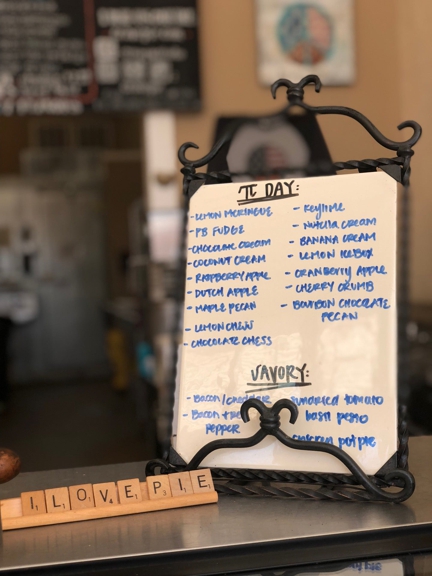 π DAY:
- LEMON MERINGUE
- PB FUDGE
- CHOCOLATE CREAM
- COCONUT CREAM
- RASPBERRY APPLE
- DUTCH APPLE
- MAPLE PECAN
- LEMON CHESS
- CHOCOLATE CHESS
- KEYLIME
- NUTELLA CREAM
- BANANA CREAM
- LEMON ICEBOX
- CRANBERRY APPLE
- CHERRY CRUMB
- BOURBON CHOCOLATE
PECAN
SAVORY:
- Bacon/cheddar
- Bacon +
PEPPER
sundried tomato
basil pesto
chicken potpie
I L O V E P I E